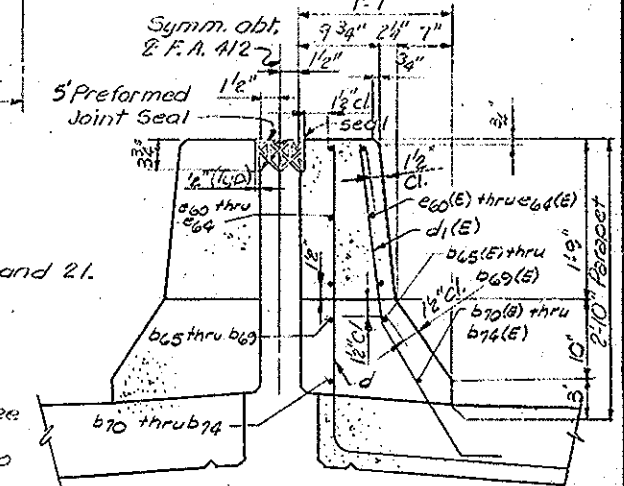 1'-7"
Symm. abt.
℄ F.A. 412
9 3/4" 2 1/4" 7"
1 1/2"
3/4"
5" Preformed
Joint Seal
1 1/2"
1 1/2" cl.
seal
3 3/4"
1/2" (Typ)
1 1/2"
Cl.
e60 thru
e64
e60(E) thru e64(E)
d1(E)
b65(E) thru
b69(E)
and 21.
1 1/2"
1 1/2" Cl.
b70(E) thru
b74(E)
b65 thru b69
1 1/2" Cl.
d
1'-9"
2'-10" Parapet
10"
3"
b70 thru b74